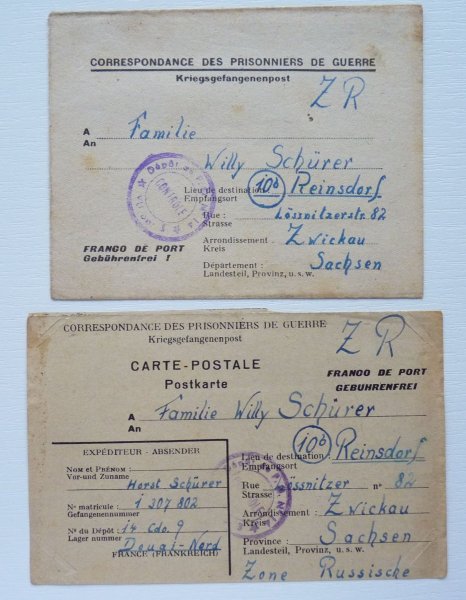 CORRESPONDANCE DES PRISONNIERS DE GUERRE
Kriegsgefangenenpost
Z R
A Familie
An
Willy Schürer
Lieu de destination
Empfangsort
10b Reinsdorf
Rue : Lössnitzerstr. 82
Strasse
Arrondissement : Zwickau
Kreis
Département : Sachsen
Landesteil, Provinz, u.s.w.
FRANCO DE PORT
Gebührenfrei !
Dépôt
CONTROLE
CORRESPONDANCE DES PRISONNIERS DE GUERRE
Kriegsgefangenenpost
Z R
CARTE-POSTALE
Postkarte
FRANCO DE PORT
GEBUHRENFREI
A Familie Willy Schürer
An
EXPÉDITEUR - ABSENDER
Nom et Prénom :
Vor-und Zuname
Horst Schürer
N° matricule : 1 207 802
Gefangenennummer
N° du Dépôt : 14 Cdo. 9
Lager nummer
Douai-Nord
FRANCE (FRANKREICH)
Lieu de destination : 10b Reinsdorf
Empfangsort
Rue Lössnitzer n° 82
Strasse
Arrondissement : Zwickau
Kreis
Province : Sachsen
Landesteil, Provinz, u.s.w.
Zone Russische